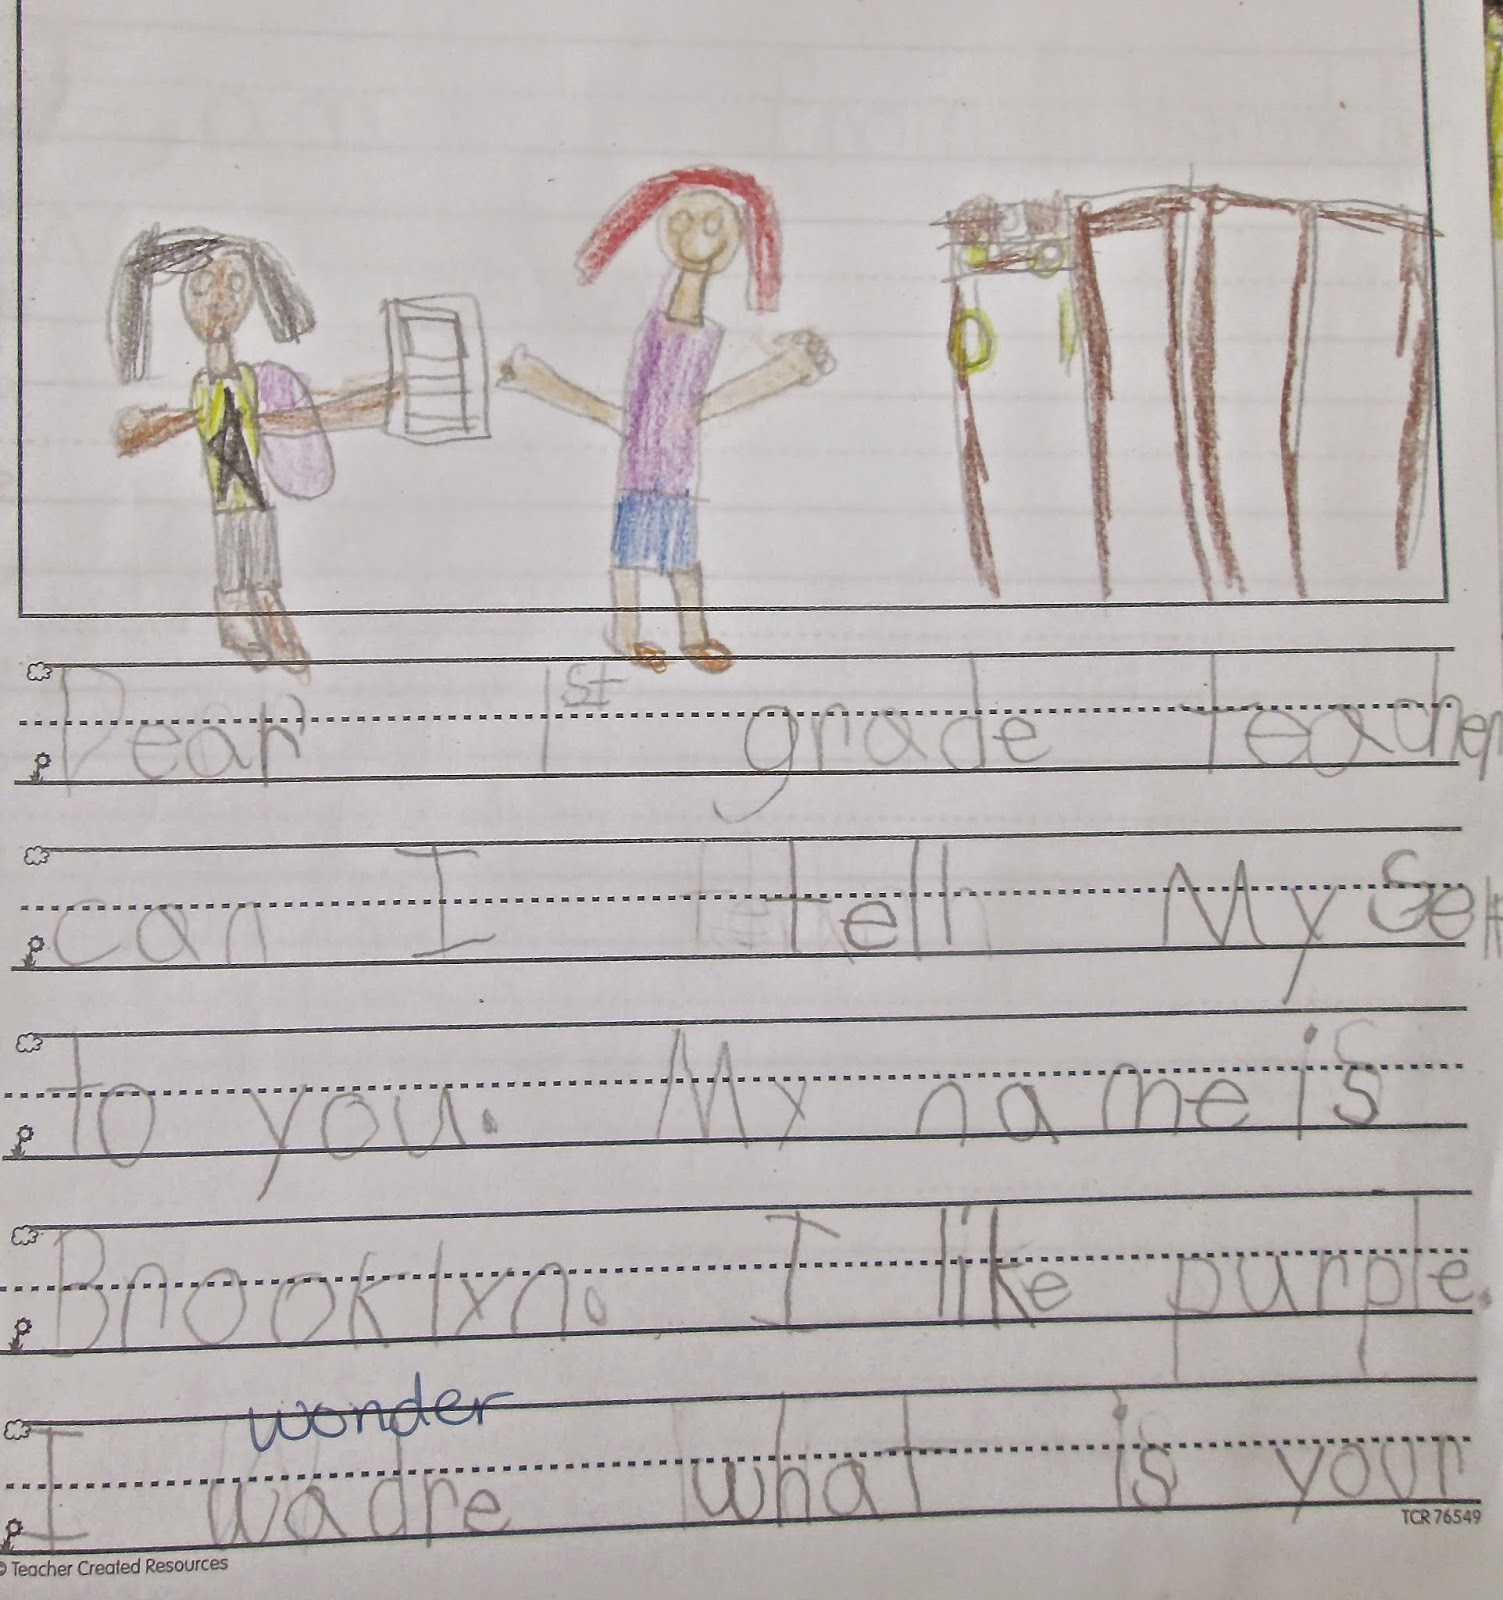 Dear 1st grade teacher
can I tell My Self
to you. My name is
Brooklyn. I like purple.
wonder
I wadre what is your
TCR 76549
© Teacher Created Resources